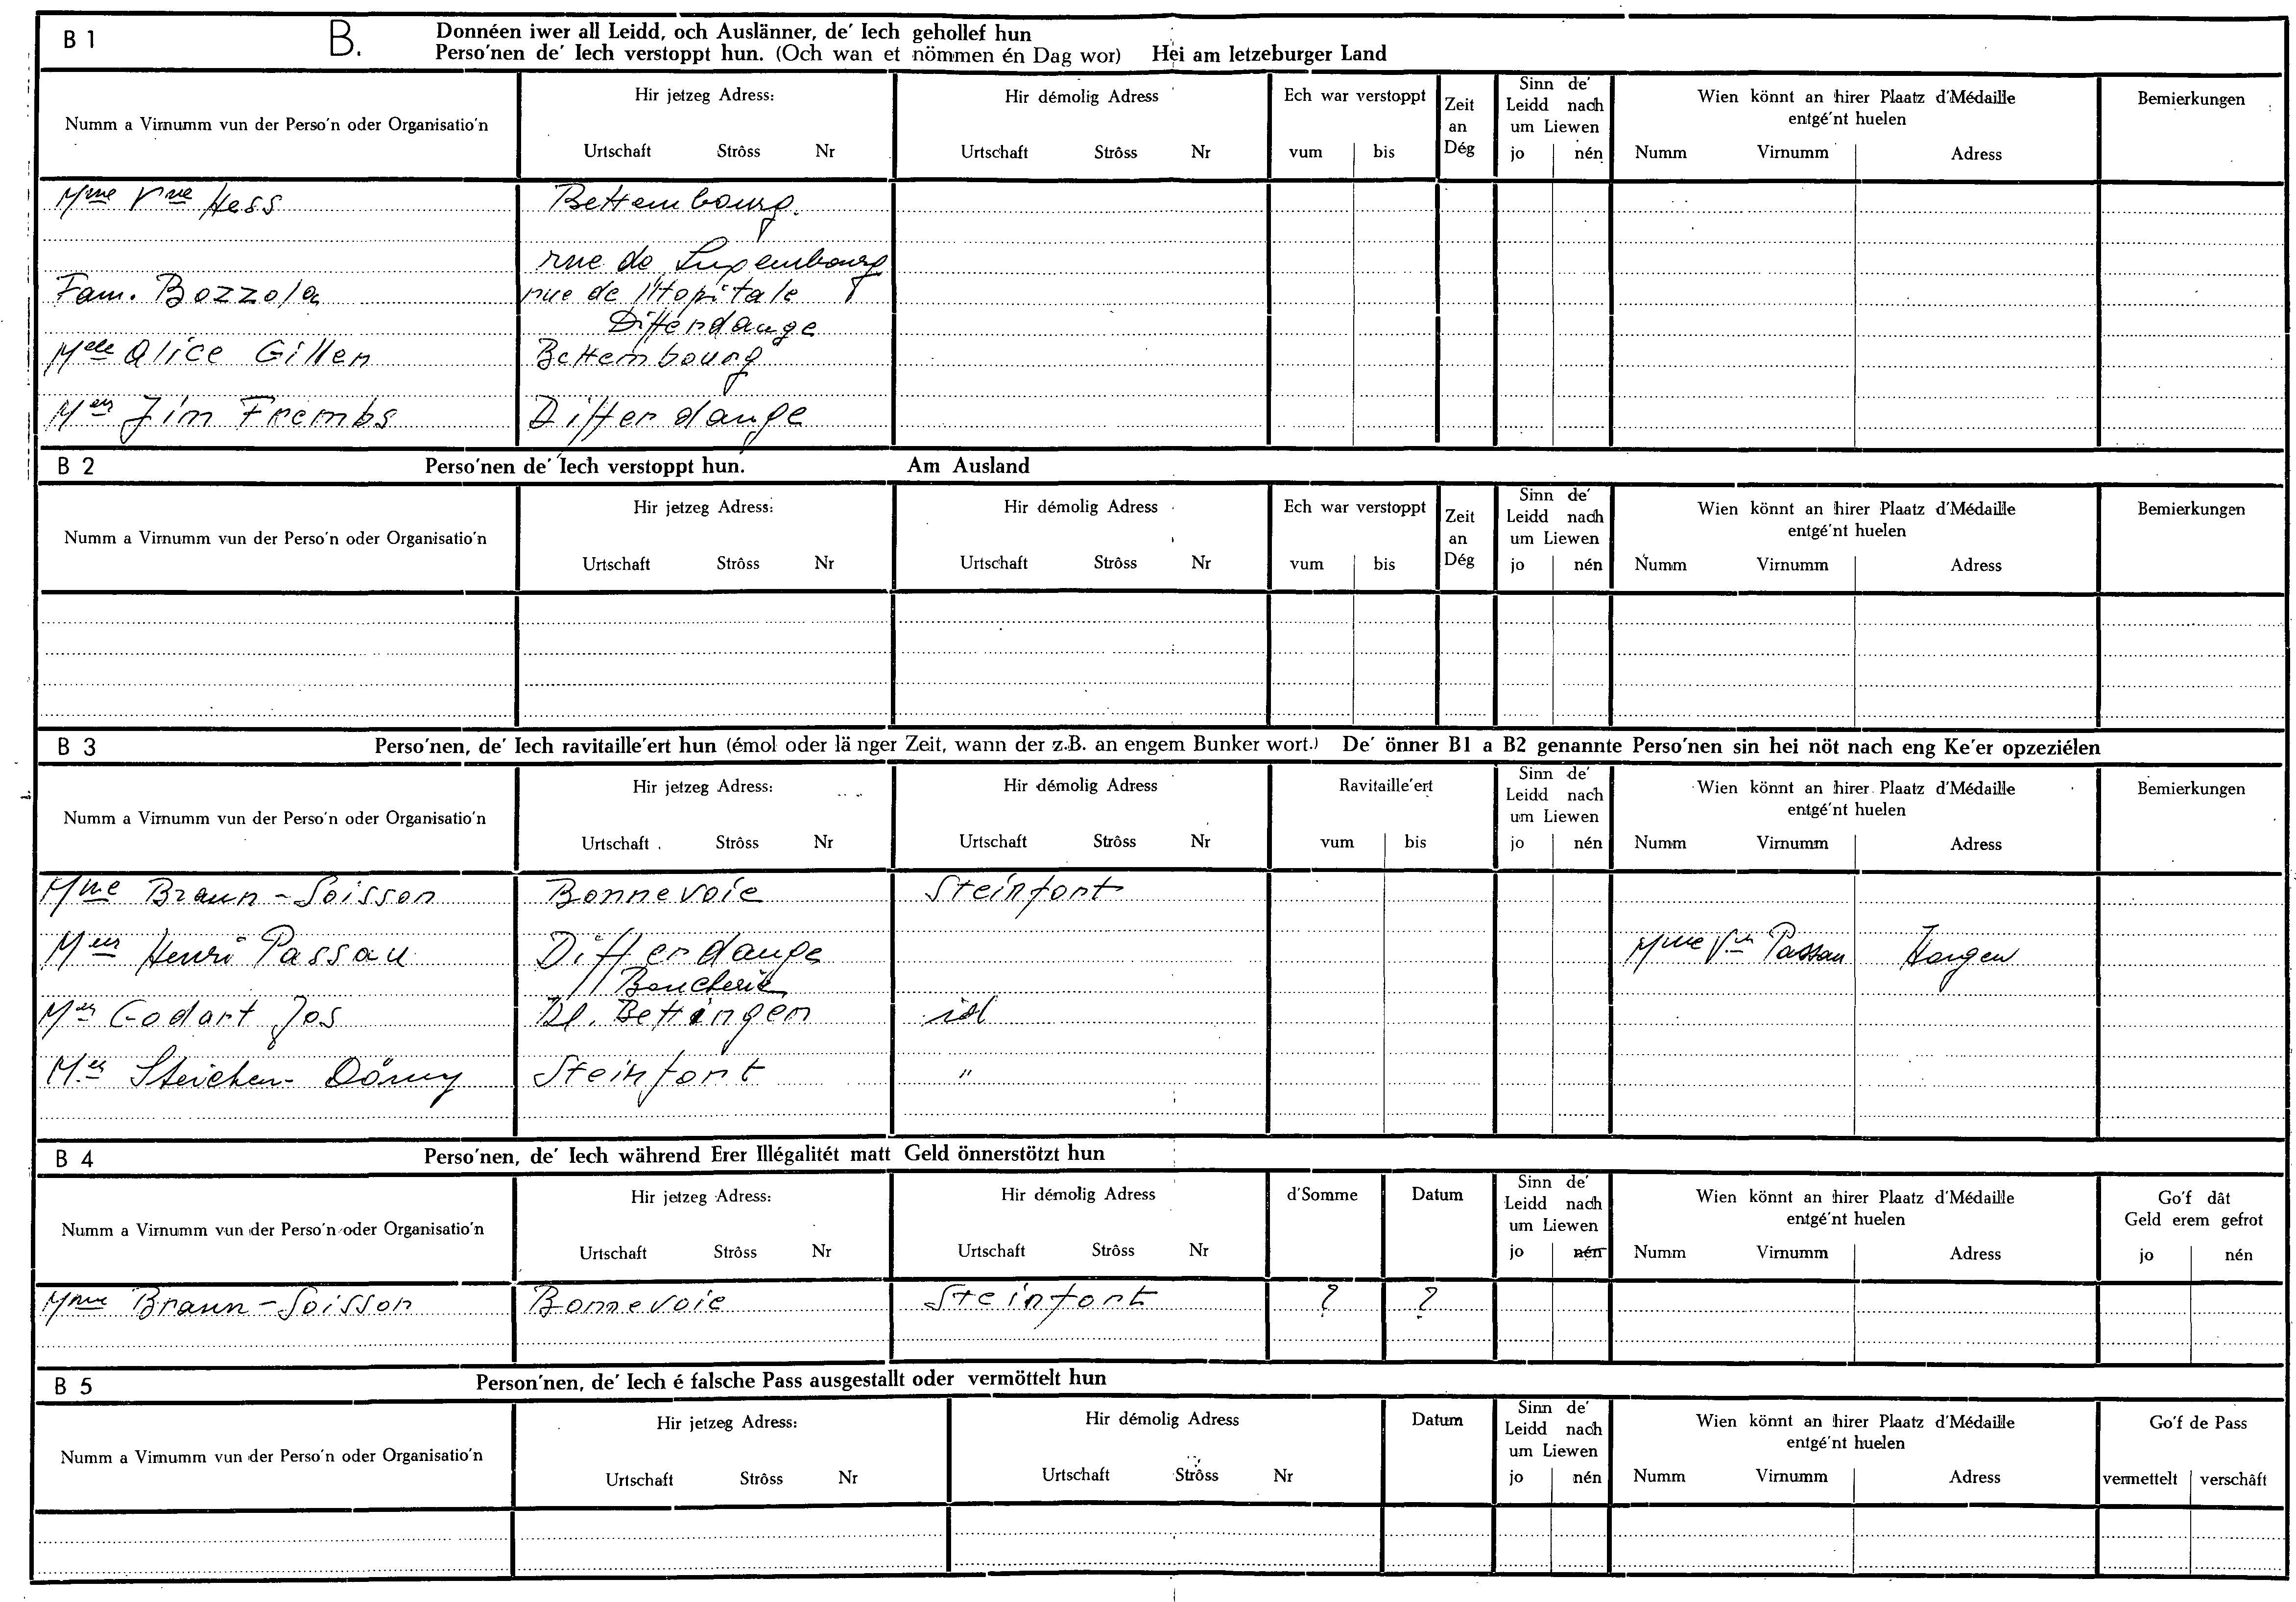 B 1 B. Donnéen iwer all Leidd, och Auslänner, de' Iech gehollef hun
Perso'nen de' Iech verstoppt hun. (Och wan et nömmen én Dag wor) Hei am letzeburger Land
Numm a Virnumm vun der Perso'n oder Organisatio'n
Hir jetzeg Adress:
Urtschaft Strôss Nr
Hir démolig Adress
Urtschaft Strôss Nr
Ech war verstoppt
vum bis
Zeit
an
Dég
Sinn de'
Leidd nach
um Liewen
jo nén
Wien könnt an hirer Plaatz d'Médaille
entgé'nt huelen
Numm Virnumm Adress
Bemierkungen
Mme Vve Hess Bettembourg.
rue de Luxembourg
Fam. Bozzola rue de l'Hopitale
Differdange
Melle Alice Gillen Bettembourg
Meur Jim Frembs Differdange
B 2 Perso'nen de' Iech verstoppt hun. Am Ausland
Numm a Virnumm vun der Perso'n oder Organisatio'n
Hir jetzeg Adress:
Urtschaft Strôss Nr
Hir démolig Adress
Urtschaft Strôss Nr
Ech war verstoppt
vum bis
Zeit
an
Dég
Sinn de'
Leidd nach
um Liewen
jo nén
Wien könnt an hirer Plaatz d'Médaille
entgé'nt huelen
Numm Virnumm Adress
Bemierkungen
B 3 Perso'nen, de' Iech ravitaille'ert hun (émol oder länger Zeit, wann der z.B. an engem Bunker wort.) De' önner B1 a B2 genannte Perso'nen sin hei nöt nach eng Ke'er opzeziélen
Numm a Virnumm vun der Perso'n oder Organisatio'n
Hir jetzeg Adress:
Urtschaft Strôss Nr
Hir démolig Adress
Urtschaft Strôss Nr
Ravitaille'ert
vum bis
Sinn de'
Leidd nach
um Liewen
jo nén
Wien könnt an hirer Plaatz d'Médaille
entgé'nt huelen
Numm Virnumm Adress
Bemierkungen
Mme Braun-Soisson Bonnevoie Steinfort
Meur Henri Passau Differdange Mme Vve Passau
Boucherie
Mr Godart Jos Kl. Bettingen id
Mr Steichen- Steinfort "
B 4 Perso'nen, de' Iech während Erer Illégalitét matt Geld önnerstötzt hun
Numm a Virnumm vun der Perso'n oder Organisatio'n
Hir jetzeg Adress:
Urtschaft Strôss Nr
Hir démolig Adress
Urtschaft Strôss Nr
d'Somme Datum
Sinn de'
Leidd nach
um Liewen
jo nén
Wien könnt an hirer Plaatz d'Médaille
entgé'nt huelen
Numm Virnumm Adress
Go'f dât
Geld erem gefrot
jo nén
Mme Braun-Soisson Bonnevoie Steinfort ? ?
B 5 Person'nen, de' Iech é falsche Pass ausgestallt oder vermöttelt hun
Numm a Virnumm vun der Perso'n oder Organisatio'n
Hir jetzeg Adress:
Urtschaft Strôss Nr
Hir démolig Adress
Urtschaft Strôss Nr
Datum
Sinn de'
Leidd nach
um Liewen
jo nén
Wien könnt an hirer Plaatz d'Médaille
entgé'nt huelen
Numm Virnumm Adress
Go'f de Pass
vermettelt verschâft